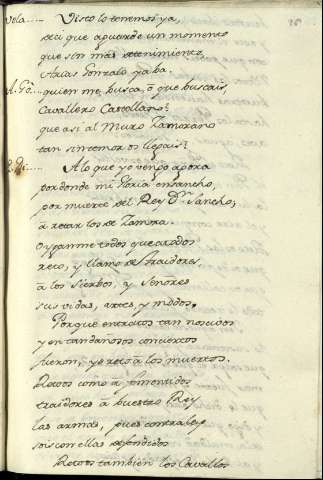 Vela..... Visto lo tenemos ya,
deci que aguarde un momento
que sin mas detenimiento
Arias Gonzalo ya ba.
A. Gō.... quien me busca, o que buscais,
Cavallero Castellano?
que asi al Muro Zamorano
tan sin temor os llegais?
A lo que yo vengo agora
por donde mi gloria ensancho,
por muerte del Rey Dn Sancho,
â retar los de Zamora.
Oyganme todos que atodos
reto, y llamo de traidores
â los Sierbos, y Señores
sus vidas, artes, y modos.
Porque en tratos tan
y en tan dañosos conciertos
fueron, y â los muertos.
Retoos como â fementidos
traidores â buestro Rey
las armas, pues contra ley
sois con ellas defendidos
Retoos tambien los Cavallos